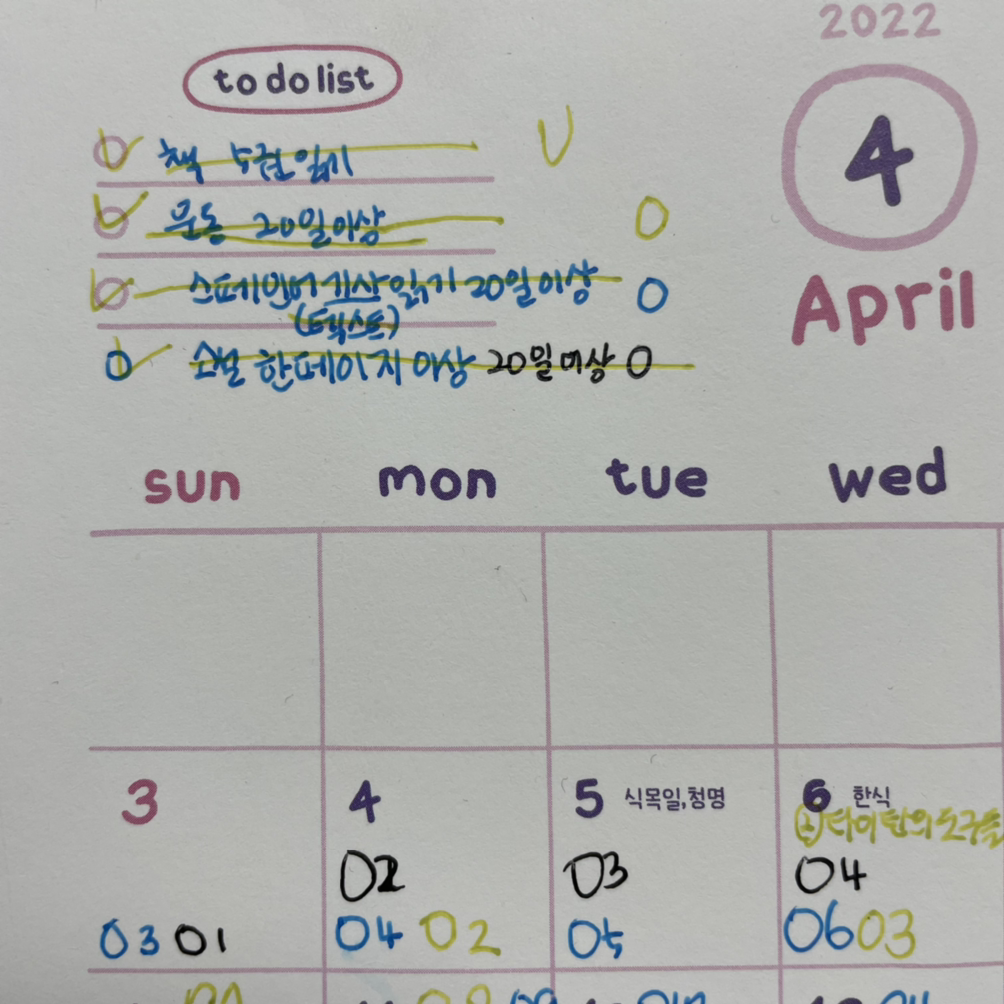 2022
to do list
4
April
책 5권 읽기
운동 20일 이상
스페인어 기사 읽기 20일 이상
(텍스트)
소설 한페이지 이상 20일 이상
sun mon tue wed
3 4 5 식목일,청명 6 한식
타이탄의 도구들
02 03 04
03 01 04 02 05 06 03